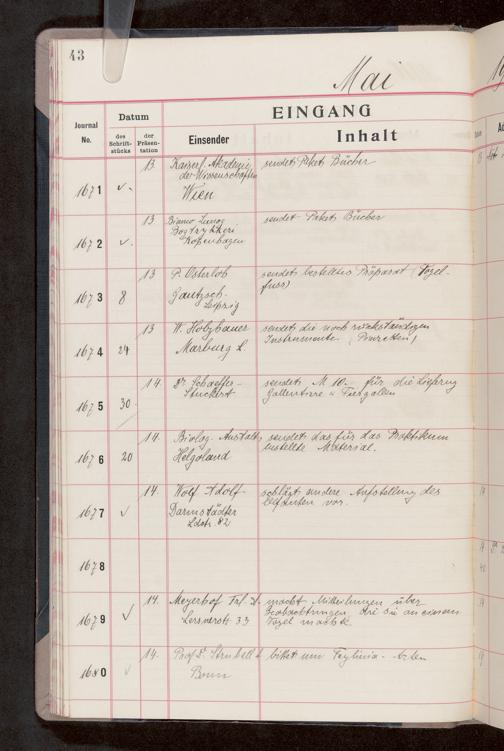 43
Mai
Journal No.
Datum
des Schriftstücks
der Präsentation
EINGANG
Einsender
Inhalt
1671 13. Kaiserl. Akademie sendet Paket Bücher
der Wissenschaften
Wien
1672 13. Bianco Luno sendet Paket Bücher
Bogtrykkeri
Kopenhagen
1673 8 13 P. Osterloh sendet bestelltes Präparat (Vogel-
Gautzsch- fuss)
Leipzig
1674 24 13 W. Holzhauer sendet die noch rückständigen
Marburg L. Instrumente (Pinzetten)
1675 30. 14. Dr Schaeffer- sendet M 10.- für die Lieferung
Stuckert
1676 20 14. Biolog. Anstalt, sendet das für das Praktikum
Helgoland bestellte Material.
1677 14. Wolf Adolf schlägt andere Aufstellung des
Darmstädter Elefanten vor.
Ldstr. 82
1678
1679 14. Meyerhof macht Mitteilungen über
Lersnerstr. 33 Beobachtungen die sie an einem
Vogel machte
1680 14. Prof Dr. Strubell bittet um
Bonn